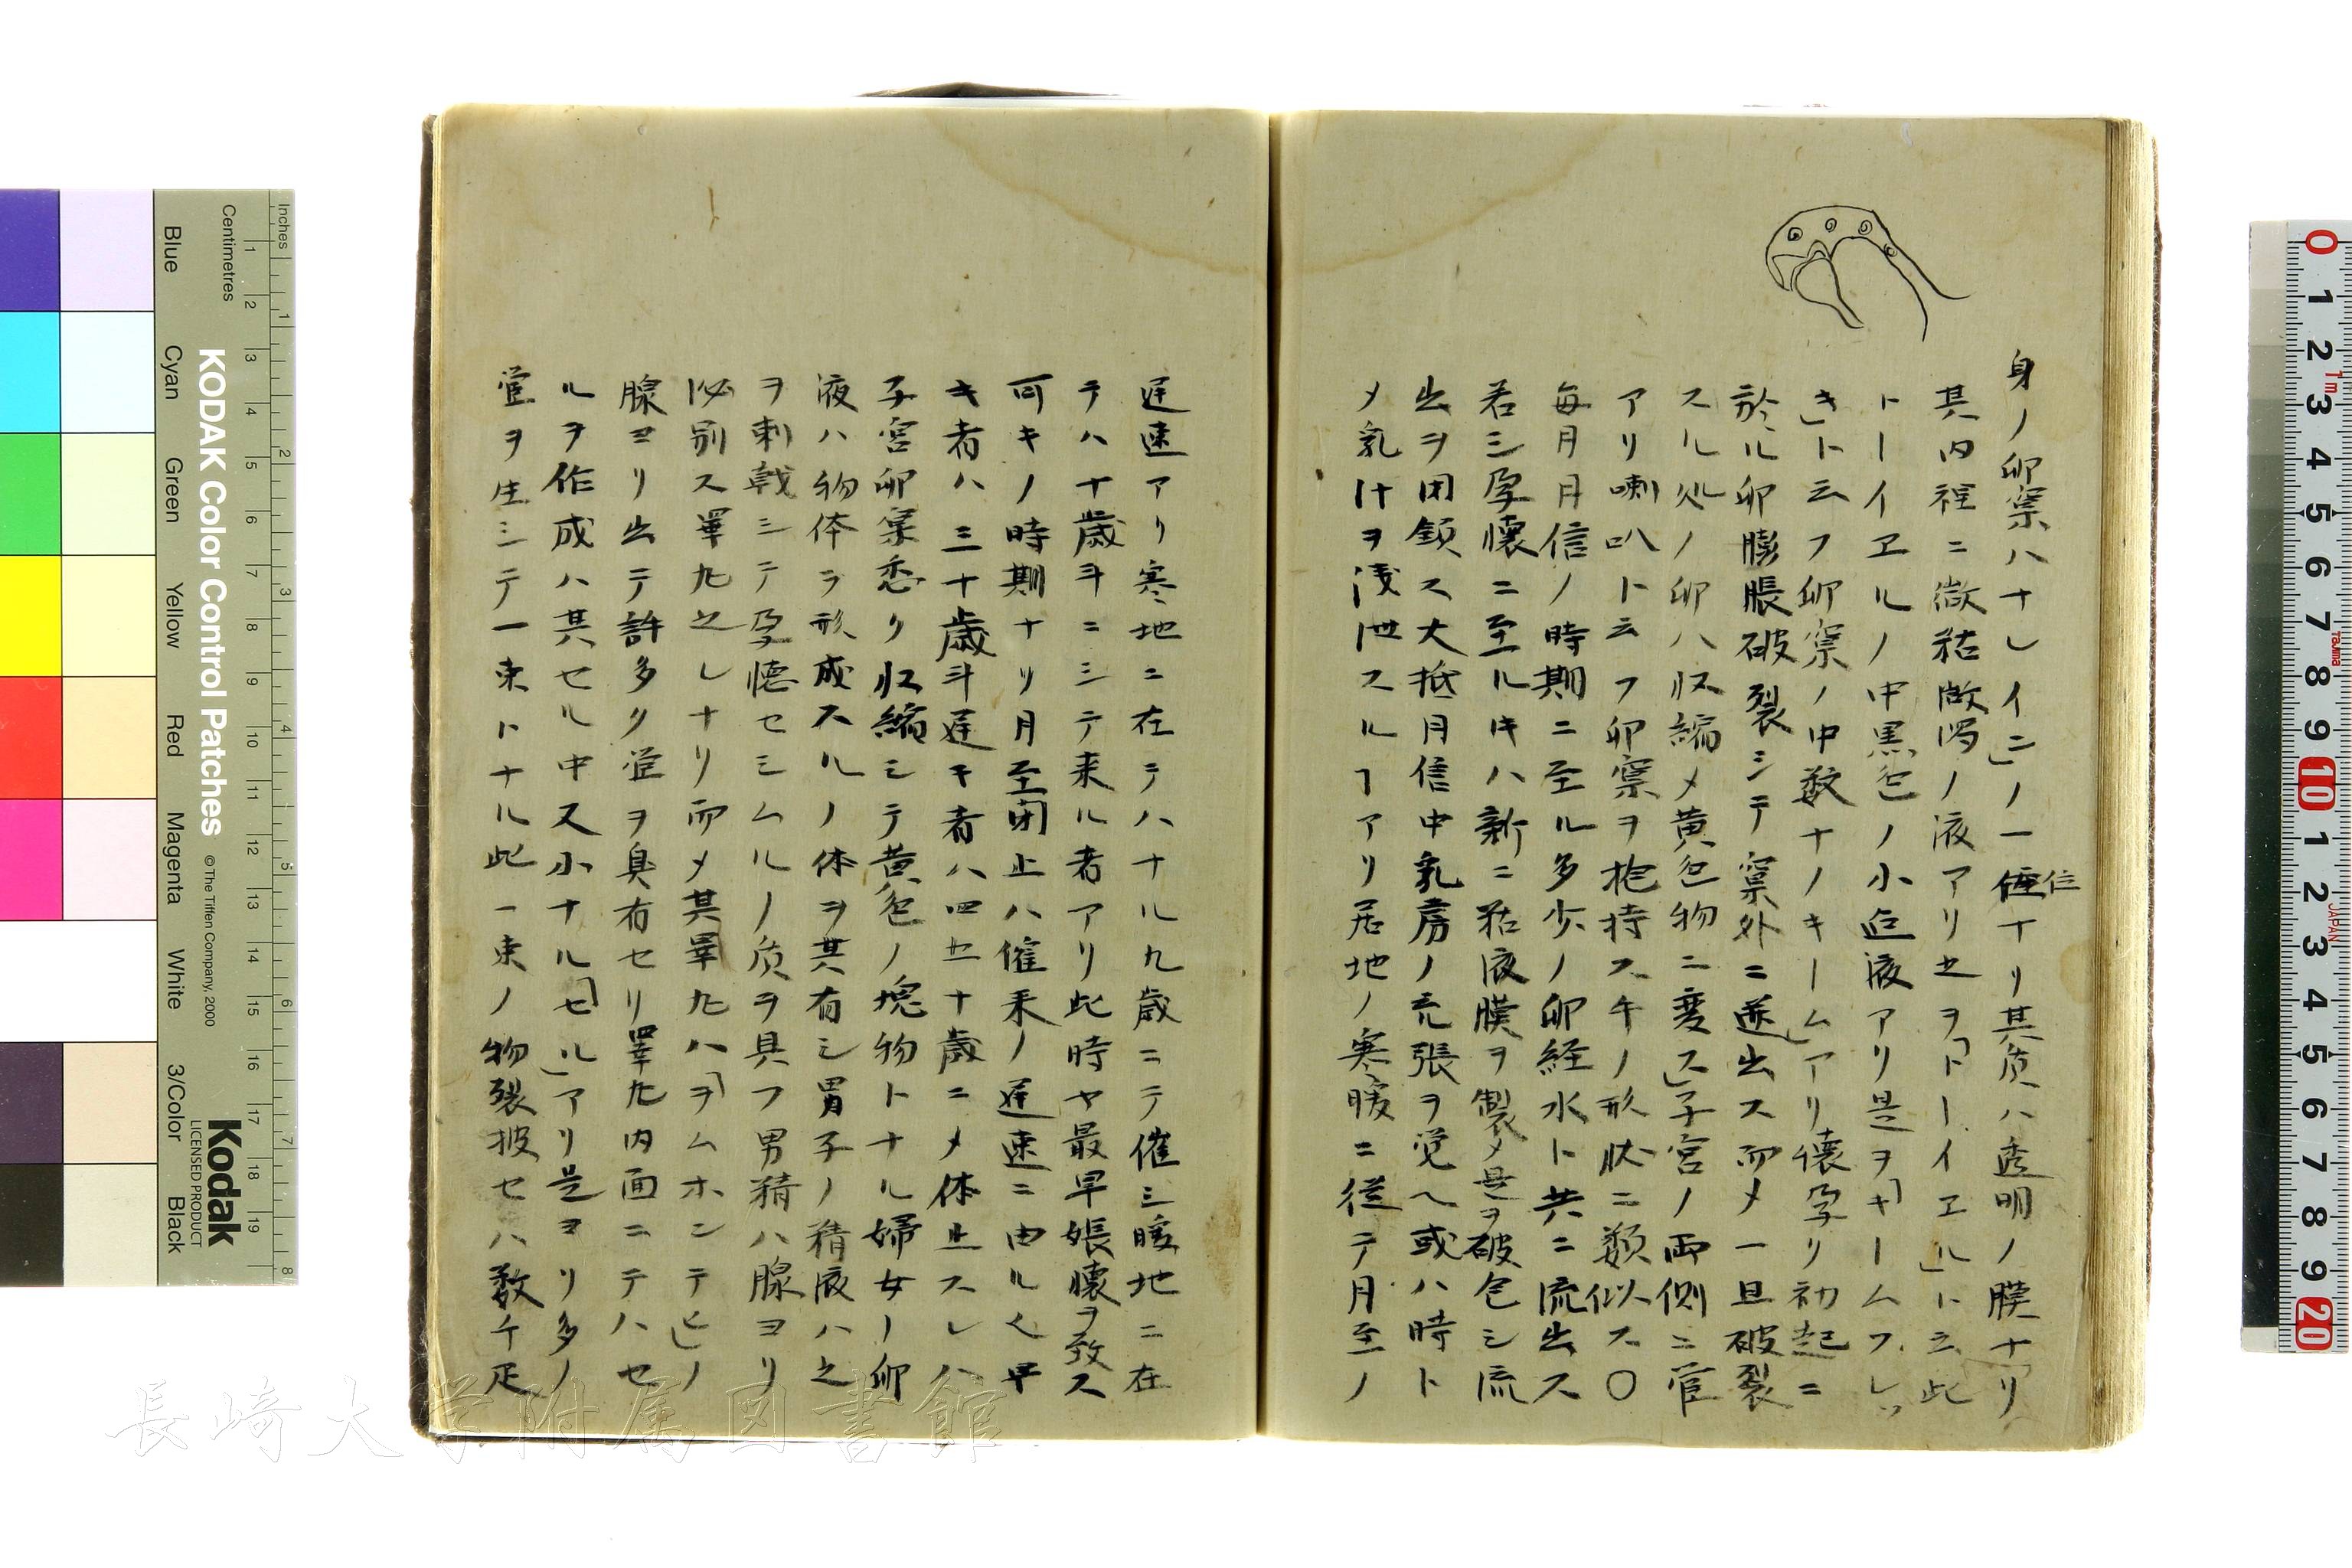 身ノ卵窠ハナレイニ」ノ一種ナリ其质ハ透明ノ膜ナリ
位
其内裡ニ微粘ノ液アリ之ヲ「トーイヱル」ト云此
トーイヱルノ中黒色ノ小液アリ是ヲ「キームフレッ
キ」ト云フ卵窠ノ中数ナノキーム」アリ懐孕リ初起ニ
於ル卵膨脹破裂シテ窠外ニ逬出ス而メ一旦破裂
スル処ノ卵ハ収縮メ黄色物ニ変ス」子宮ノ両側ニ管
アリ喇叭ト云フ卵窠ヲ抱持ス牛ノ形状ニ類似ス〇
毎月月信ノ時期ニ至ル多少ノ卵経水ト共ニ流出ス
若シ孕懐ニ至ルキハ新ニ粘液膜ヲ製メ是ヲ破包シ流
出ヲ閉鎖ス大抵月信中乳房ノ充張ヲ覚ヘ或ハ時ト
メ乳汁ヲ洩泄スルヿアリ居地ノ寒暖ニ従テ月至ノ
遅速アリ寒地ニ在テハ十ル九歳ニテ催シ暖地ニ在
テハ十歳斗ニシテ来ル者アリ此時ヤ最早娠懐ヲ致ス
可キノ時期ナリ月至閉止ハ催来ノ遅速ニ由ル乀早
キ者ハ三十歳斗遅キ者ハ四五十歳ニメ休止スレハ
子宮卵窠悉ク収縮シテ黄色ノ塊物トナル婦女ー卵
液ハ物体ヲ形成スルノ体ヲ其有シ男子ノ精液ハ之
ヲ刺戟シテ孕懐セシムルノ质ヲ具フ男精ハ腺ヨリ
泌別ス睾丸之レナリ而メ其睾丸ハ「ヲムホンテヒ」ノ
腺ヨリ出テ許多ク管ヲ具有セリ睾丸内面ニテハセ
ルヲ作成ハ其セル中又小ナル「セル」アリ是ヨリ多ノ
管ヲ生シテ一束トナル此一束ノ物裂披セハ数千疋
長崎大学附属図書館
KODAK Color Control Patches
© The Tiffen Company, 2000
Kodak
LICENSED PRODUCT
Inches
Centimetres
Blue
Cyan
Green
Yellow
Red
Magenta
White
3/Color
Black
1 2 3 4 5 6 7 8 9 10 11 12 13 14 15 16 17 18 19
1 2 3 4 5 6 7 8
0 1 2 3 4 5 6 7 8 9 10 1 2 3 4 5 6 7 8 9 20
1m
JAPAN